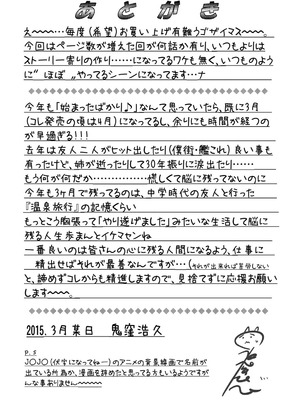 あとがき
え~~…毎度(希望)お買い上げ有難うゴザイマス~~。
今回はページ数が増えた回が何話か有り、いつもよりは
ストーリー寄りの作り……になってるワケも無く、いつものよう
に〝ほぼ〟ヤってるシーンになってます…ナ
今年も「始まったばかり♪」なんて思っていたら、既に3月
(コレ発売の頃は4月)になってるし、余りにも時間が経つの
が早過ぎる!!!
去年は友人二人がヒット出したり(僕街・艦これ)良い事も
有ったけど、姉が逝ったりして30年振りに涙出たり……
もう何が何だか…………慌しくて脳に残ってないのに
今年も3ヶ月で残ってるのは、中学時代の友人と行った
『温泉旅行』の記憶くらい
もっとこう胸張って「やり遂げました」みたいな生活して脳に
残る人生歩まんとイケマセンね
一番良いのは皆さんの心に残る人間になるよう、仕事に
精出せばそれが最善なんですが…(それが出来れば苦労しない)
と、諦めずコレからも精進しますので、見捨てずに応援お願い
します~~。
2015. 3月某日 鬼窪浩久
P.S
JOJO(伏字になってねー)のアニメの背景線画で名前が
出ている所為か、漫画を辞めたと思ってる方もいるようですが
んな事ありません~~~